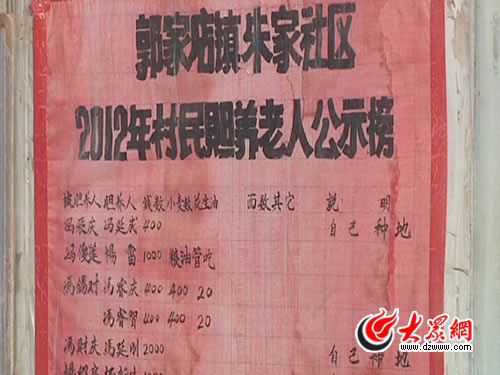 郭家店镇朱家社区
2012年村民赡养老人公示榜
被赡养人 赡养人 钱数 小麦数 花生油 面数 其它 说 明
冯 庆 冯延成 400 自己 种地
冯俊莲 杨雷 1000 粮油管吃
冯锡时 冯睿庆 400 400 20
冯睿智 400 400 20
冯财庆 冯延刚 2000 自己 种地
大众网
www.dzwww.com